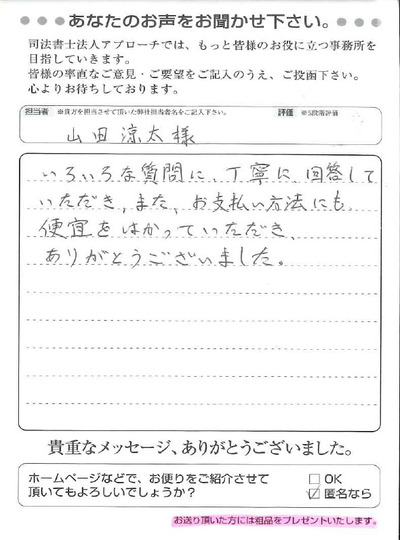 あなたのお声をお聞かせ下さい。
司法書士法人アプローチでは、もっと皆様のお役に立つ事務所を
目指していきます。
皆様の率直なご意見・ご要望をご記入のうえ、ご投函下さい。
心よりお待ちしております。
担当者 ※貴方を担当させて頂いた弊社担当者名をご記入下さい。 評価 ※5段階評価
山田涼太様
いろいろな質問に、丁寧に回答して
いただき、また、お支払い方法にも
便宜をはかっていただき、
ありがとうございました。
貴重なメッセージ、ありがとうございました。
ホームページなどで、お便りをご紹介させて
頂いてもよろしいでしょうか?
□ OK
☑ 匿名なら
お送り頂いた方には粗品をプレゼントいたします。